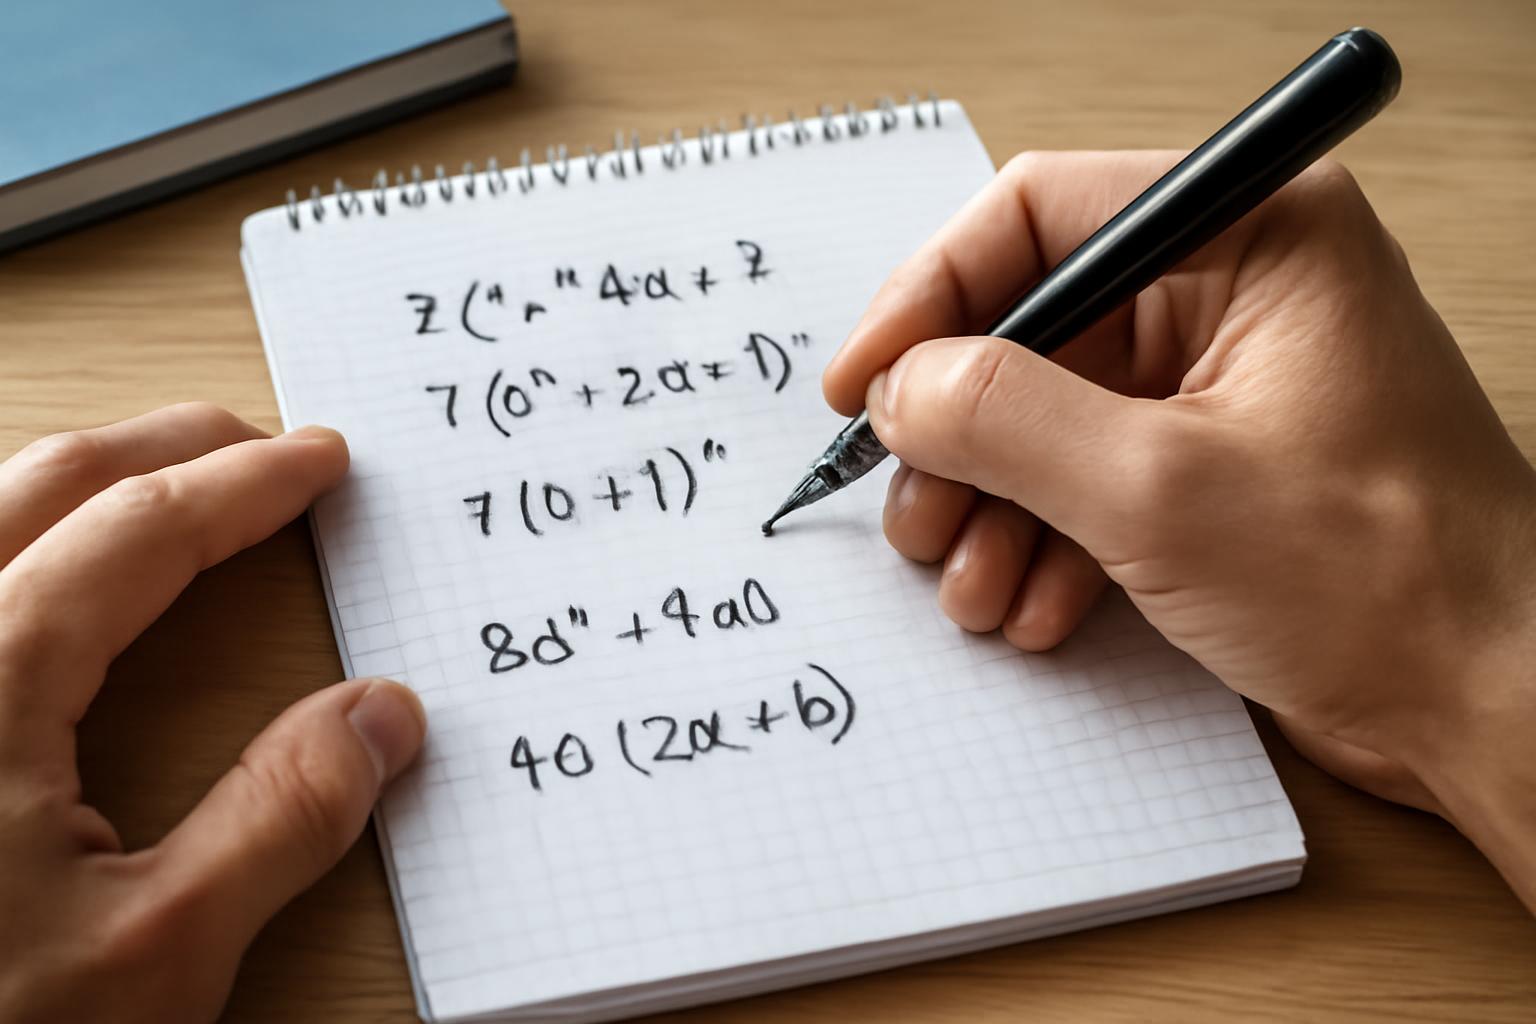 7 (0" + 2a = 1)"
7 (0 + 1)"
8d" + 4a0
40 (2a + b)